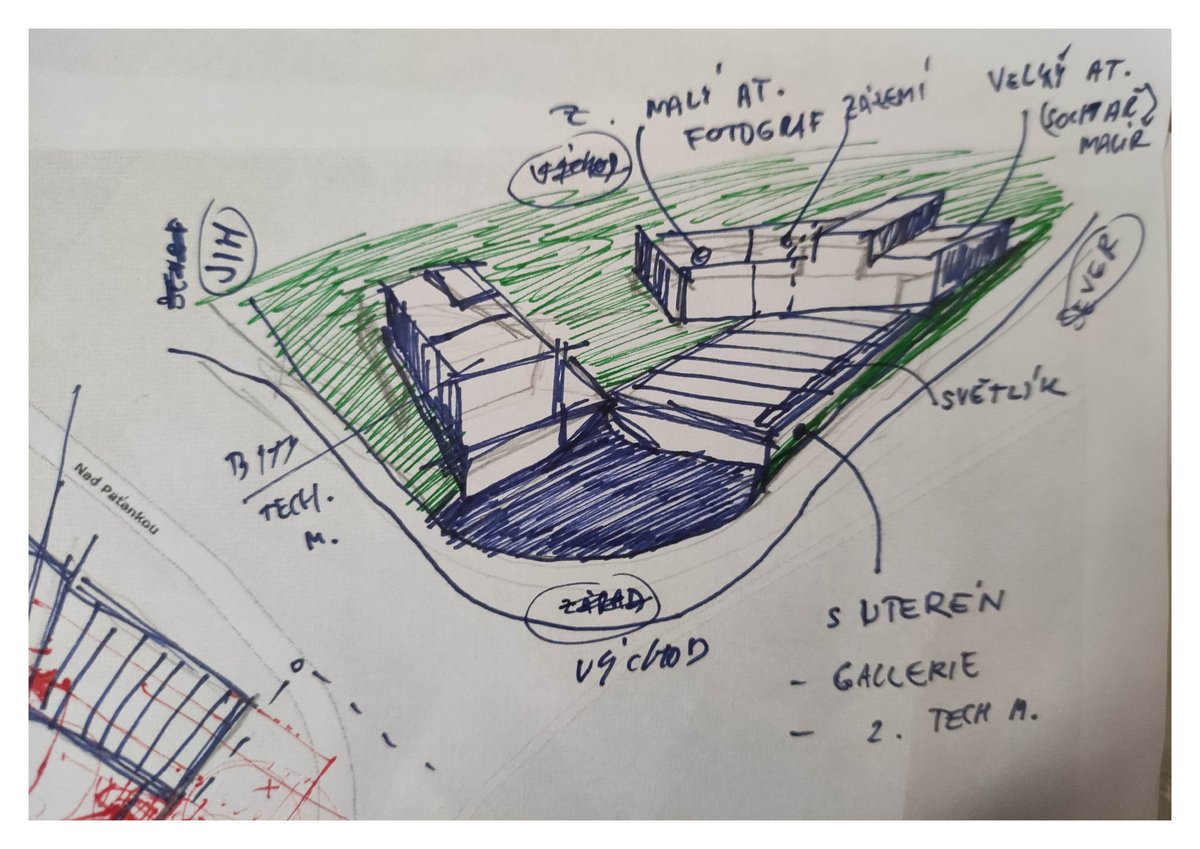 Z.
MALÝ AT.
FOTOGRAF
ZÁZEMÍ
VELKÝ AT.
(SOCHAŘ)
MALÍŘ
VÝCHOD
JIH
SEVER
SVĚTLÍK
BYTY
TECH.
M.
Nad Paťankou
ZÁPAD
VÝCHOD
SUTERÉN
- GALLERIE
- 2. TECH M.